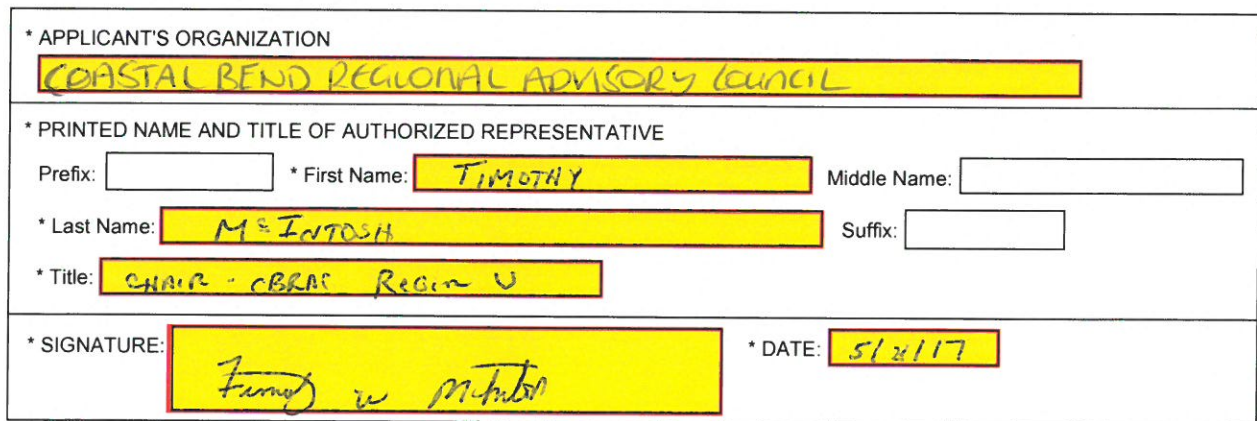 * APPLICANT'S ORGANIZATION
COASTAL BEND REGIONAL ADVISORY COUNCIL
* PRINTED NAME AND TITLE OF AUTHORIZED REPRESENTATIVE
Prefix: * First Name: TIMOTHY Middle Name:
* Last Name: McINTOSH Suffix:
* Title: CHAIR - CBRAC Region U
* SIGNATURE: Timothy W McIntosh * DATE: